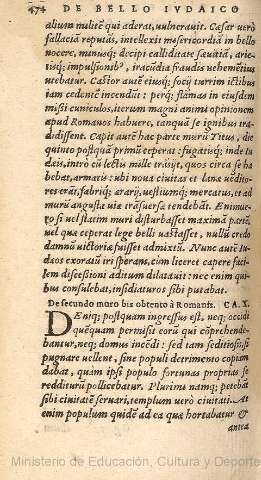 474 DE BELLO IVDAICO
alium militē qui aderat, vulnerauit. Cæsar verò
fallacia repulsus, intellexit misericordiā in bello
nocere, minusq; decipi calliditate sæuitiā, arie-
tisq; impulsionib⁹, iracūdia fraudis vehemētius
vtebatur. Castor autē eiusq; socij turrim ictibus
iam cedentē incendūt: perq; flāmas in eiusdem
missi cuniculos, iterum magni animi opinionem
apud Romanos habuere, tanquā se ignibus tra-
didissent. Capit autē hac parte murū Titus, die
quinto postquā primū ceperat: fugatisq; inde Iu
dæis, intrò cū lectis mille trāsijt, quos circa se ha
bebat, armatis: vbi noua ciuitas et lanæ vēdito-
res erāt, fabriq; ærarij, vestiumq; mercatus, et ad
murū angustæ viæ trāsuersæ tendebāt. Enimue-
rò si vel statim muri disturbasset maximā partē,
vel quā ceperat lege belli vastasset, nullū credo
damnū victoriæ fuisset admixtū. Nunc autē Iu-
dæos exoratū iri sperans, cùm liceret capere facil-
lem discessioni aditum dilatauit: nec enim qui-
bus consulebat, insidiaturos sibi putabat.
De secundo muro bis obtento à Romanis. CA. X.
DEniq; postquam ingressus est, neq; occidi
quēquam permisit eorū qui cōprehende-
bantur, neq; domus incēdi: sed tam seditiosis, si
pugnare vellent, sine populi detrimento copiam
dabat, quàm ipsi populo fortunas proprias se
redditurū pollicebatur. Plurimi namq; petebāt
sibi ciuitatē seruari, templum verò ciuitati. At
enim populum quidē ad ea quæ hortabatur &
antea
Ministerio de Educación, Cultura y Deporte